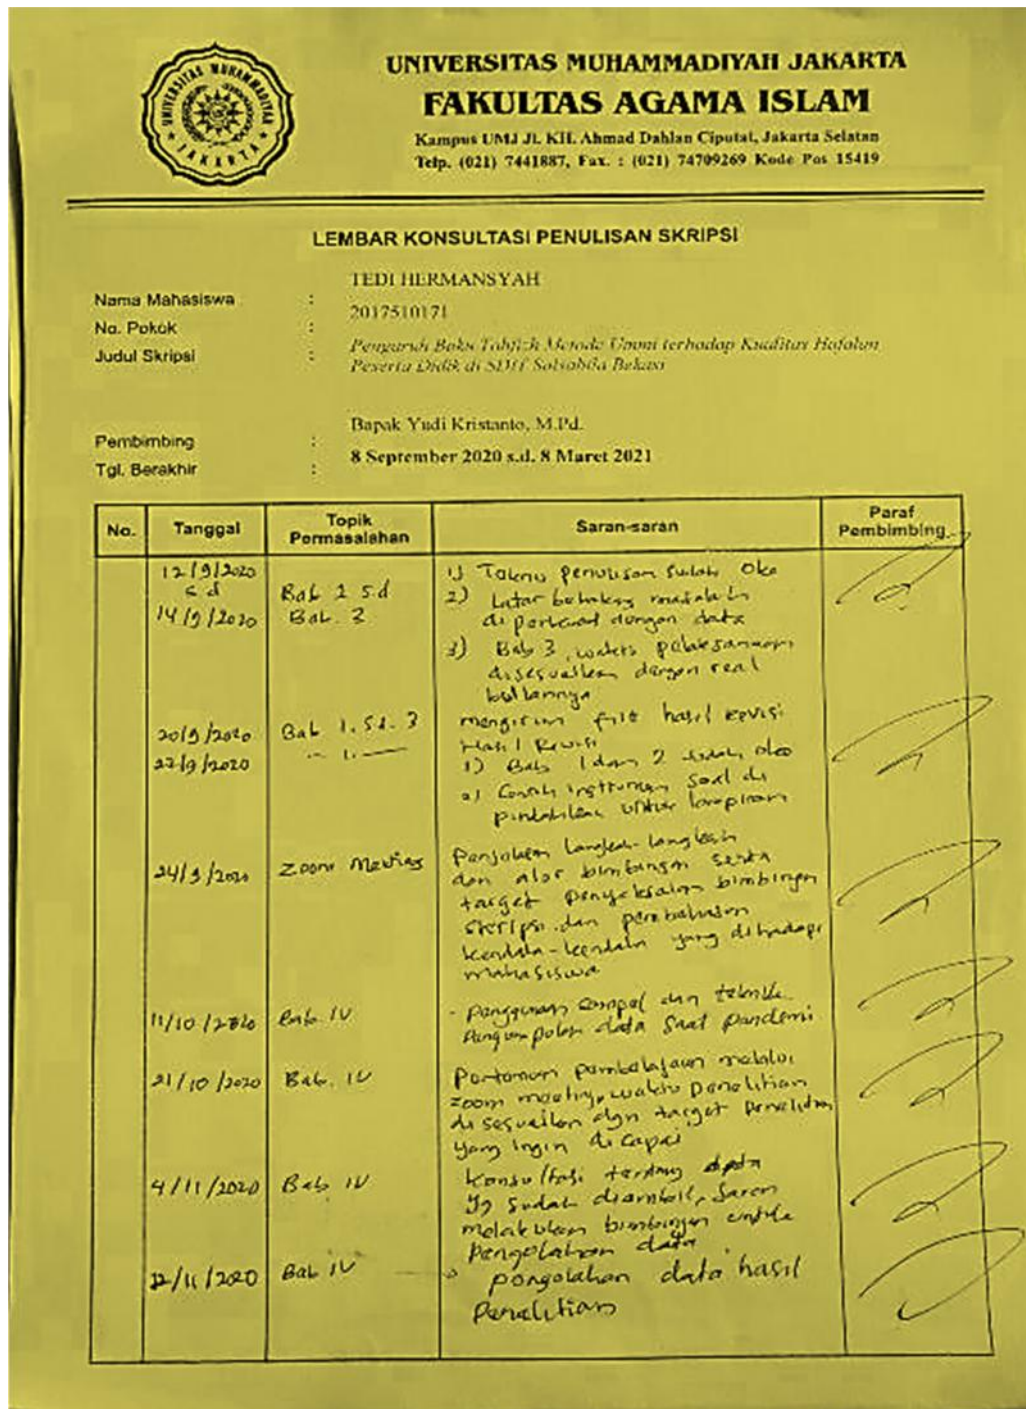 UNIVERSITAS MUHAMMADIYAH JAKARTA
UNIVERSITAS MUHAMMADIYAH JAKARTA
FAKULTAS AGAMA ISLAM
Kampus UMJ Jl. KH. Ahmad Dahlan Ciputat, Jakarta Selatan
Telp. (021) 7441887, Fax. : (021) 74709269 Kode Pos 15419
LEMBAR KONSULTASI PENULISAN SKRIPSI
Nama Mahasiswa : TEDI HERMANSYAH
No. Pokok : 2017510171
Judul Skripsi : Pengaruh Buku Tahfizh Metode Ummi terhadap Kualitas Hafalan
Peserta Didik di SDIT Salsabila Bekasi
Pembimbing : Bapak Yudi Kristanto, M.Pd.
Tgl. Berakhir : 8 September 2020 s.d. 8 Maret 2021
No. Tanggal Topik Permasalahan Saran-saran Paraf Pembimbing
12/9/2020 s d 14/9/2020
Bab 2 s.d Bab. 3
1) Teknis penulisan sudah oke
2) Latar belakang masalah
diperkuat dengan data
3) Bab 3, waktu pelaksanaan
disesuaikan dengan real
bulannya
20/9/2020 Bab 1. Sd. 3 mengirim file hasil revisi
22/9/2020 Hasil Revisi
1) Bab 1 dan 2 sudah oke
2) Contoh instrumen soal di
pindahkan untuk lampiran
24/9/2020 Zoom Meeting Penjelasan langkah-langkah
dan alur bimbingan serta
target penyelesaian bimbingan
skripsi dan pembahasan
kendala-kendala yang dihadapi
mahasiswa
11/10/2020 Bab IV - Penggunaan sampel dan teknik
Pengumpulan data saat pandemi
21/10/2020 Bab. IV Pertemuan pembelajaran melalui
zoom meeting, waktu penelitian
disesuaikan dgn target penelitian
yang ingin dicapai
4/11/2020 Bab IV Konsultasi tentang data
yg sudah diambil, saran
melakukan bimbingan untuk
pengolahan data
12/11/2020 Bab IV pengolahan data hasil
Penelitian